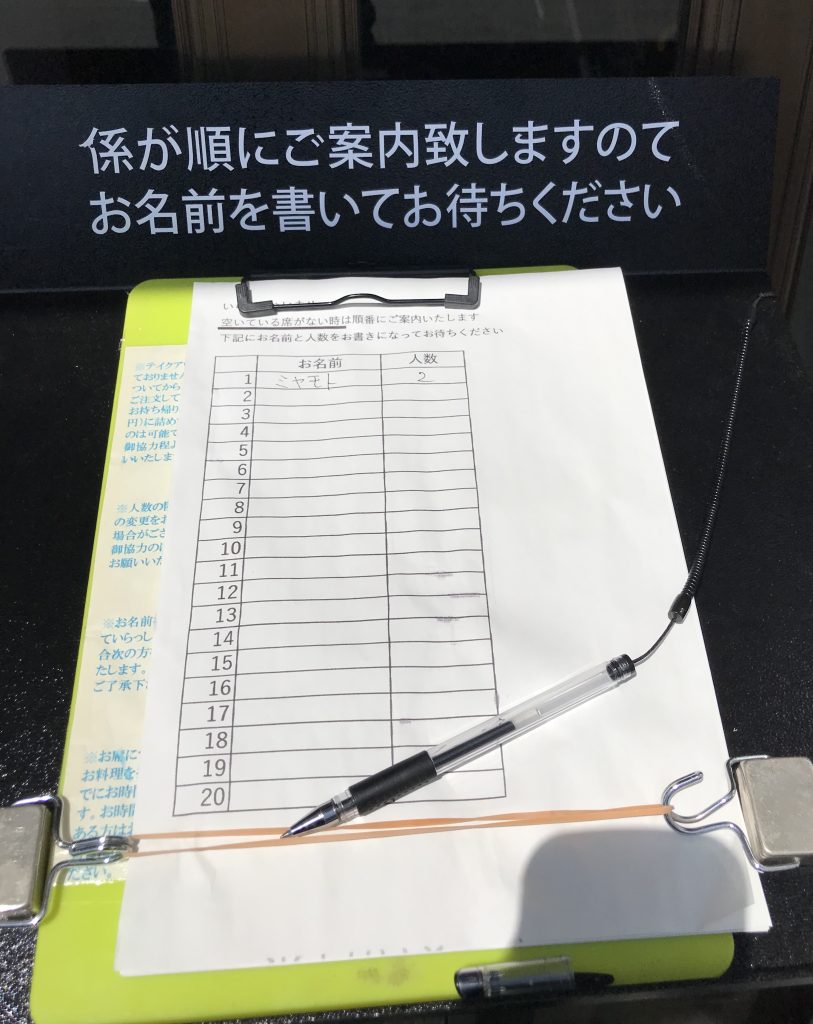 係が順にご案内致しますのて
お名前を書いてお待ちください
空いている席がない時は順番にご案内いたします
下記にお名前と人数をお書きになってお待ちください
お名前 人数
1 ミヤモト 2
2
3
4
5
6
7
8
9
10
11
12
13
14
15
16
17
18
19
20
※テイクア
ておりませ
ついてから
ご注文して
お持ち帰り
円)に詰め
のは可能で
御協力程よ
いいたしま
※人数の
の変更をお
場合がござ
御協力の
お願いいた
※お名前
ていらっし
合次の方
たします。
ご了承下
※お席に
お料理を
でにお時
す。お時間
ある方は
ださい。